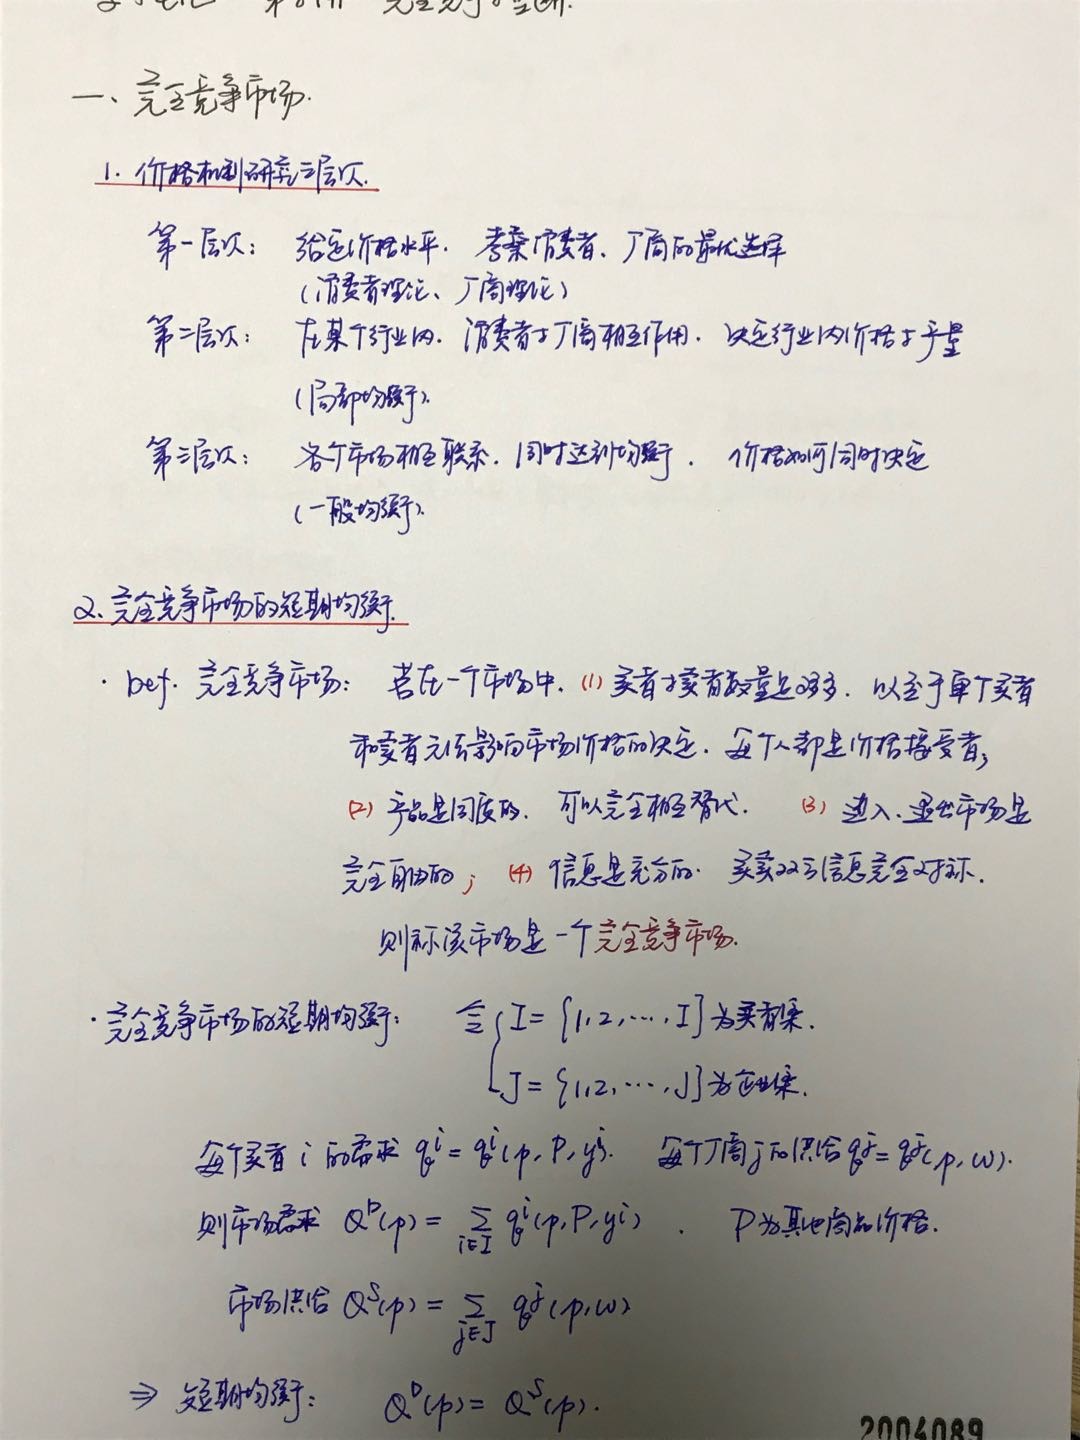 一、完全竞争市场.
1. 价格机制研究三层次.
第一层次： 给定价格水平. 考察消费者、厂商的最优选择
(消费者理论、厂商理论)
第二层次： 在某个行业内. 消费者与厂商相互作用. 决定行业内价格与产量
(局部均衡).
第三层次： 各个市场相互联系. 同时达到均衡. 价格如何同时决定
(一般均衡).
2. 完全竞争市场的短期均衡.
· Def. 完全竞争市场： 若在一个市场中. (1) 买者与卖者数量足够多. 以至于单个买者
和卖者无法影响市场价格的决定. 每个人都是价格接受者;
(2) 产品是同质的. 可以完全相互替代. (3) 进入、退出市场是
完全自由的; (4) 信息是充分的. 买卖双方信息完全对称.
则称该市场是一个完全竞争市场.
· 完全竞争市场的短期均衡： 令 { I = {1,2,…,I} 为买者集.
J = {1,2,…,J} 为企业集.
每个买者 i 的需求 qⁱ = qⁱ(p, P, yⁱ). 每个厂商 j 的供给 qʲ = qʲ(p, w).
则市场需求 Qᴰ(p) = Σ_{i∈I} qⁱ(p, P, yⁱ) . P为其他商品价格.
市场供给 Qˢ(p) = Σ_{j∈J} qʲ(p, w)
⇒ 短期均衡： Qᴰ(p) = Qˢ(p).
2004089